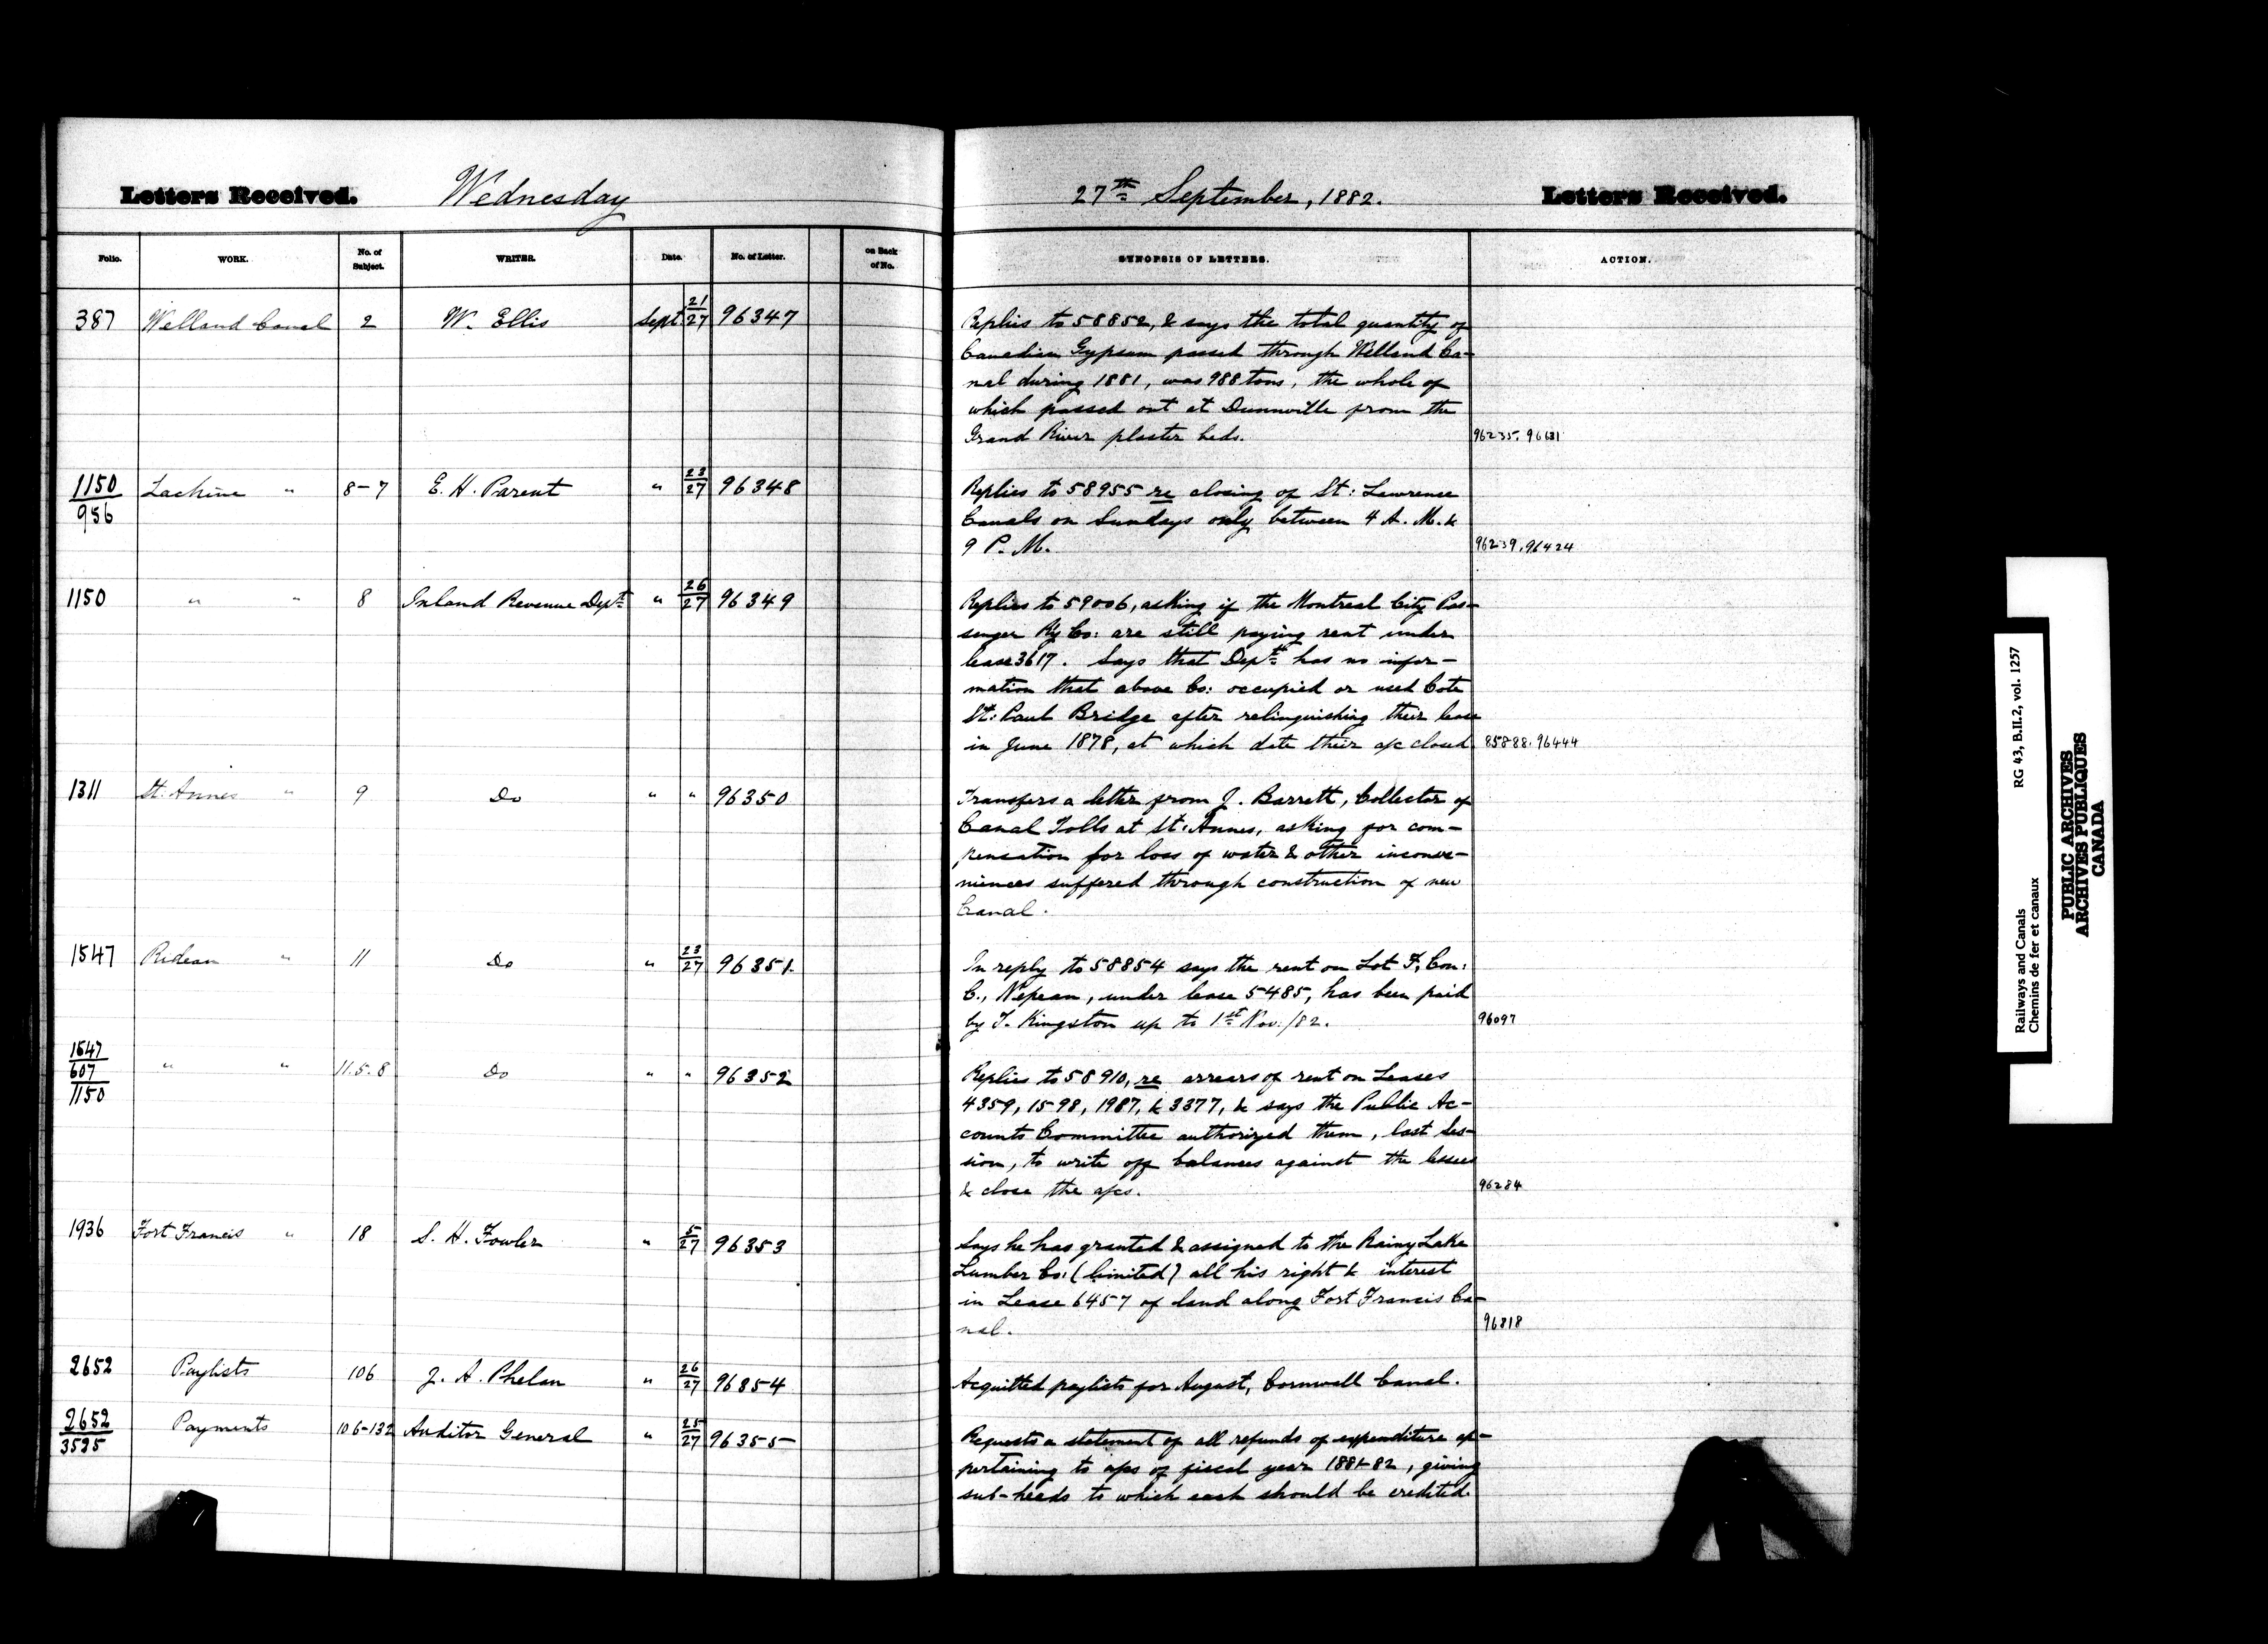 Letters Received.
Wednesday
27th September, 1882.
Letters Received.
Folio.
WORK.
No. of Subject.
WRITER.
Date.
No. of Letter.
on Back of No.
SYNOPSIS OF LETTERS.
ACTION.
387 Welland Canal 2 W. Ellis Sept 21/27 96347
Replies to 58852, & says the total quantity of
Canadian Gypsum passed through Welland Ca-
nal during 1881, was 988 tons, the whole of
which passed out at Dunnville from the
Grand River plaster beds.
96235. 96631
1150/956 Lachine " 8-7 E. H. Parent " 23/27 96348
Replies to 58955 re closing of St: Lawrence
Canals on Sundays only between 4 A. M. &
9 P. M.
96239. 96424
1150 " " 8 Inland Revenue Dept " 26/27 96349
Replies to 59006, asking if the Montreal City Pas-
senger Ry Co: are still paying rent under
lease 3617. Says that Dept has no infor-
mation that above Co: occupied or used Cote
St: Paul Bridge after relinquishing their lease
in June 1878, at which date their a/c closed
85888. 96444
1311 St. Annes " 9 Do " " 96350
Transfers a letter from J. Barrett, Collector of
Canal Tolls at St: Annes, asking for com-
pensation for loss of water & other inconve-
niences suffered through construction of new
Canal.
1547 Rideau " 11 Do " 23/27 96351.
In reply to 58854 says the rent on Lot F, Con:
C., Nepean, under lease 5485, has been paid
by T. Kingston up to 1st Nov. /82.
96097
1547/607/1150 " " 11.5.8 Do " " 96352
Replies to 58910, re arrears of rent on Leases
4359, 1598, 1987, & 3377, & says the Public Ac-
counts Committee authorized them, last Ses-
sion, to write off balances against the lessees
& close the a/cs.
96284
1936 Fort Francis " 18 S. H. Fowler " 5/27 96353
Says he has granted & assigned to the Rainy Lake
Lumber Co: (limited) all his right & interest
in Lease 6457 of land along Fort Francis Ca-
nal.
96818
2652 Paylists 106 J. A. Phelan " 26/27 96354
Acquitted paylists for August, Cornwall Canal.
2652/3595 Payments 106-132 Auditor General " 25/27 96355
Requests a statement of all refunds of expenditure ap-
pertaining to a/cs of fiscal year 1881-82, giving
sub-heads to which each should be credited.
RG 43, B.II.2, vol. 1257
Railways and Canals
Chemins de fer et canaux
PUBLIC ARCHIVES
ARCHIVES PUBLIQUES
CANADA